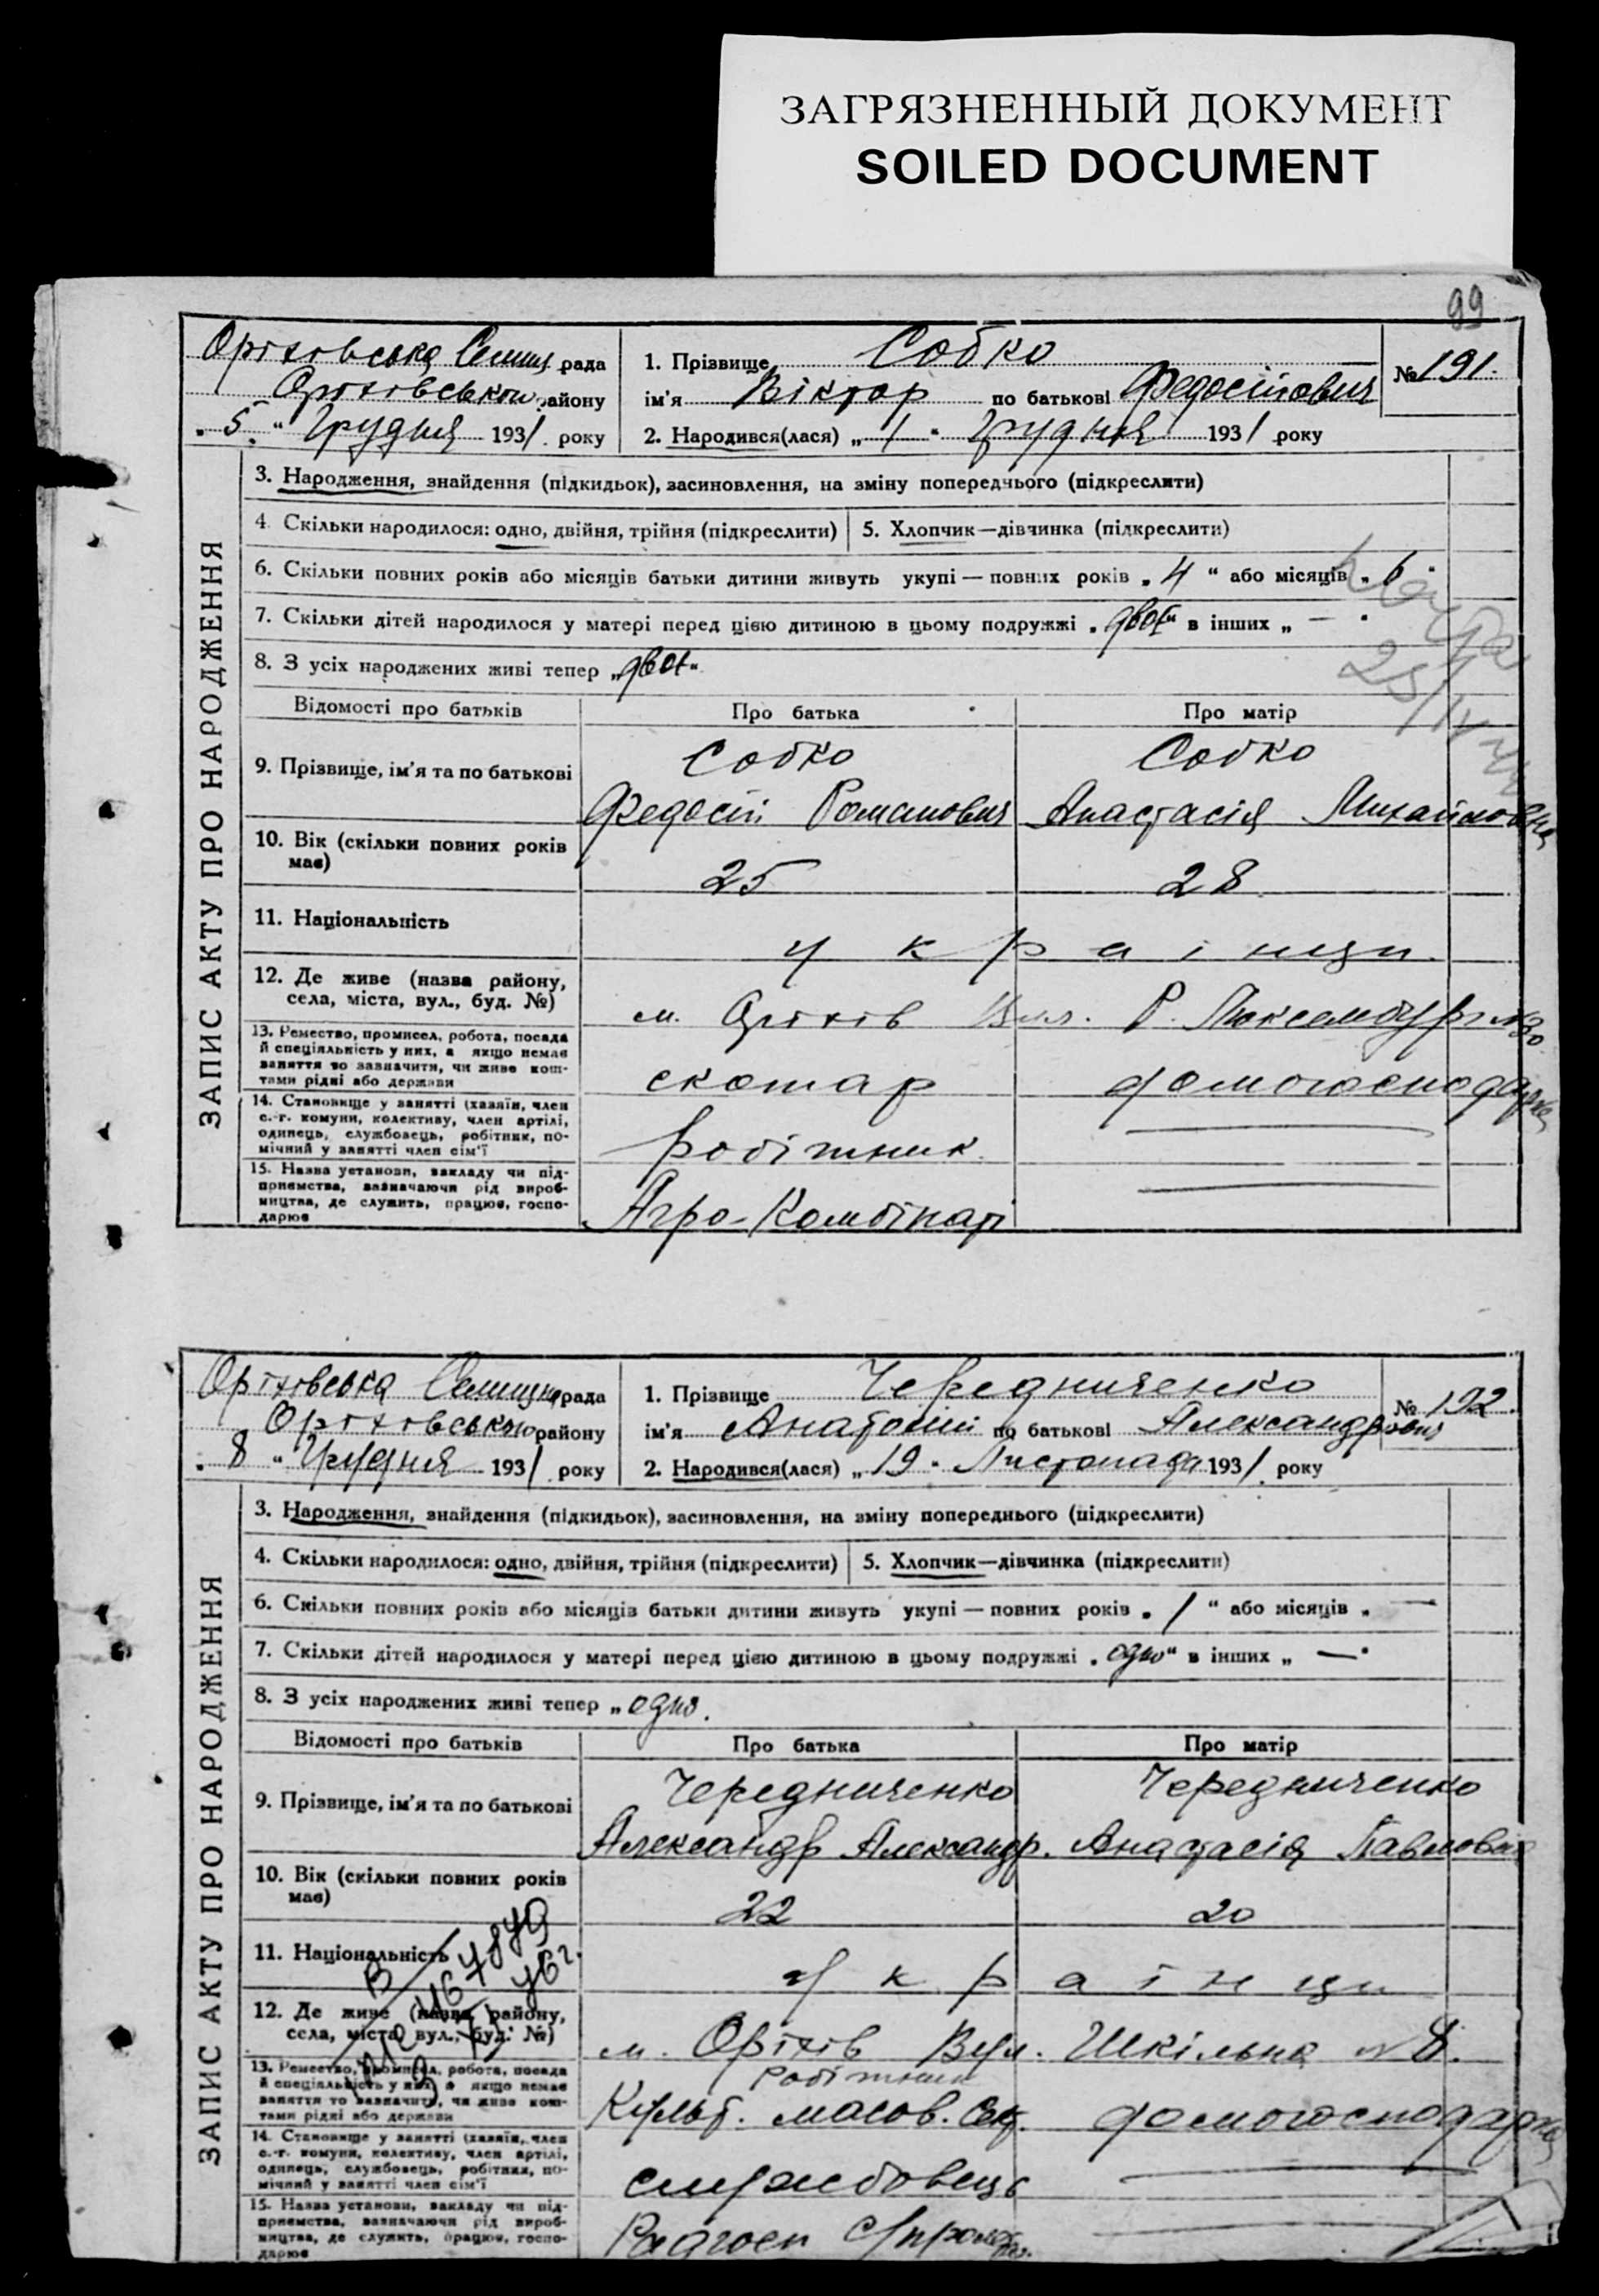 ЗАГРЯЗНЕННЫЙ ДОКУМЕНТ
SOILED DOCUMENT
99
Оріхівська Селищ. рада
Оріхівського району
„ 5. “ Грудня 1931 року
1. Прізвище Собко
ім'я Віктор по батькові Федосійович
№ 191.
2. Народився(лася) „ 1 “ грудня 1931 року
ЗАПИС АКТУ ПРО НАРОДЖЕННЯ
3. Народження, знайдення (підкидьок), засиновлення, на зміну попереднього (підкреслити)
4. Скільки народилося: одно, двійня, трійня (підкреслити) 5. Хлопчик—дівчинка (підкреслити)
6. Скільки повних років або місяців батьки дитини живуть укупі — повних років „ 4 “ або місяців „ 6 “
7. Скільки дітей народилося у матері перед цією дитиною в цьому подружжі „ двоє “ в інших „ — “
8. З усіх народжених живі тепер „двоє“
25/IV
Відомості про батьків Про батька Про матір
9. Прізвище, ім'я та по батькові
Собко Собко
Федосій Романович Анастасія Михайловна
10. Вік (скільки повних років має)
25 28
11. Національність
українци
12. Де живе (назва району, села, міста, вул., буд. №)
м. Оріхів Вул. Р. Люксембург №30
13. Ремество, промисел, робота, посада й спеціяльність у них, а якщо немає заняття то зазначити, чи живе коштами рідні або держави
скотар домогосподарка
14. Становище у занятті (хазяїн, член с.-г. комуни, колективу, член артілі, одинець, службовець, робітник, помічний у занятті член сім'ї
робітник
15. Назва установи, закладу чи підприємства, зазначаючи рід виробництва, де служить, працює, господарює
Агро-Комбінаті
Оріхівська Селищна рада
Оріхівського району
„ 8 “ Грудня 1931 року
1. Прізвище Чередниченко
ім'я Анатолій по батькові Александрович
№ 192.
2. Народився(лася) „ 19 “ Листопада 1931 року
ЗАПИС АКТУ ПРО НАРОДЖЕННЯ
3. Народження, знайдення (підкидьок), засиновлення, на зміну попереднього (підкреслити)
4. Скільки народилося: одно, двійня, трійня (підкреслити) 5. Хлопчик—дівчинка (підкреслити)
6. Скільки повних років або місяців батьки дитини живуть укупі — повних років „ 1 “ або місяців „ —
7. Скільки дітей народилося у матері перед цією дитиною в цьому подружжі „ одно “ в інших „ — “
8. З усіх народжених живі тепер „ одно.
Відомості про батьків Про батька Про матір
9. Прізвище, ім'я та по батькові
Чередниченко Чередниченко
Александр Александр. Анастасія Павловна
10. Вік (скільки повних років має)
22 20
11. Національність
українци
12. Де живе (назва району, села, міста, вул., буд. №)
м. Оріхів Вул. Шкільна № 8.
13. Ремество, промисел, робота, посада й спеціяльність у них, а якщо немає заняття то зазначити, чи живе коштами рідні або держави
робітник
Культ. масов. Сек. домогосподарка
14. Становище у занятті (хазяїн, член с.-г. комуни, колективу, член артілі, одинець, службовець, робітник, помічний у занятті член сім'ї
службовець
15. Назва установи, закладу чи підприємства, зазначаючи рід виробництва, де служить, працює, господарює
Радгосп